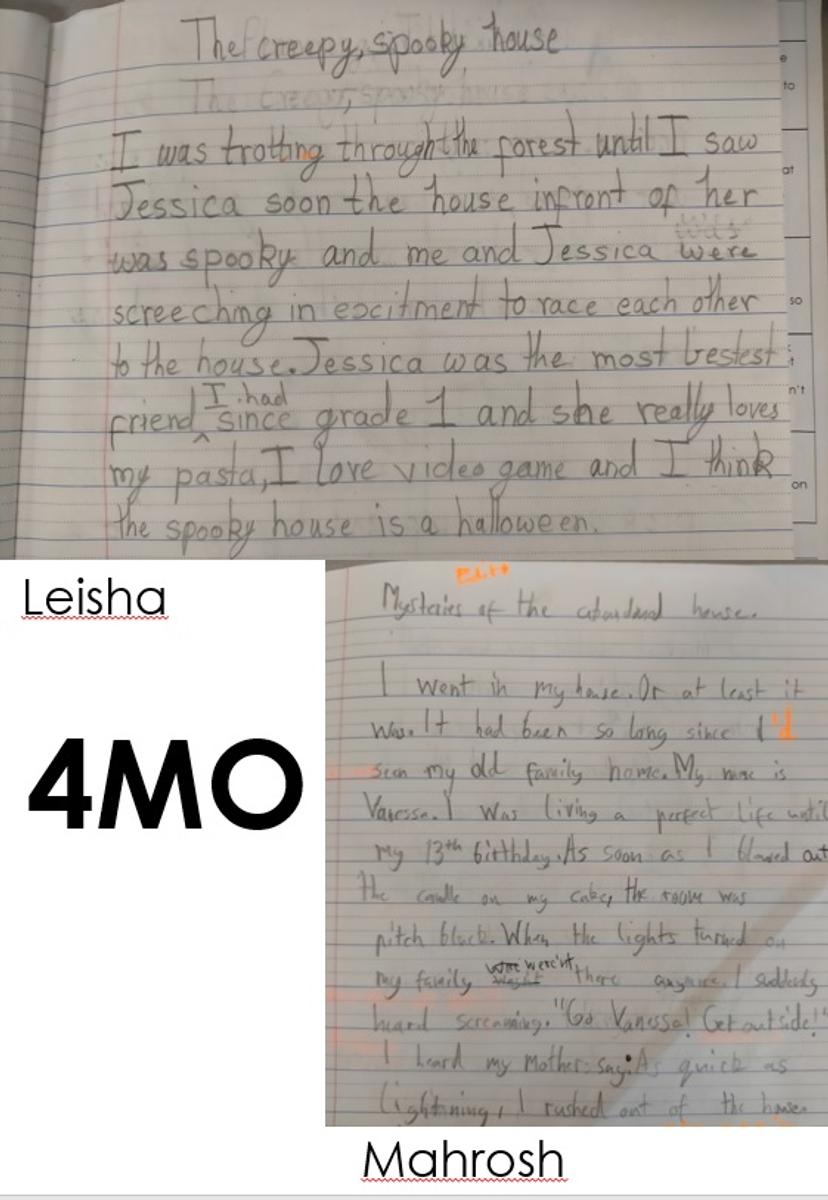 The creepy, spooky house
I was trotting through the forest until I saw
Jessica soon the house infront of her
was spooky and me and Jessica were
screeching in excitment to race each other
to the house. Jessica was the most bestest
friend I had since grade 1 and she really loves
my pasta, I love video game and I think
the spooky house is a halloween.
e
to
at
so
n't
on
Leisha
4MO
Edit
Mysteries of the house.
I went in my house. Or at least it
was. It had been so long since I'd
seen my old family home. My name is
Vanessa. I was living a perfect life until
my 13th birthday. As soon as I blowed out
the candle on my cake, the room was
pitch black. When the lights turned on
my family weren't there anymore. I suddenly
heard screaming. "Go Vanessa! Get outside!"
I heard my Mother say. As quick as
lightning, I rushed out of the house
Mahrosh